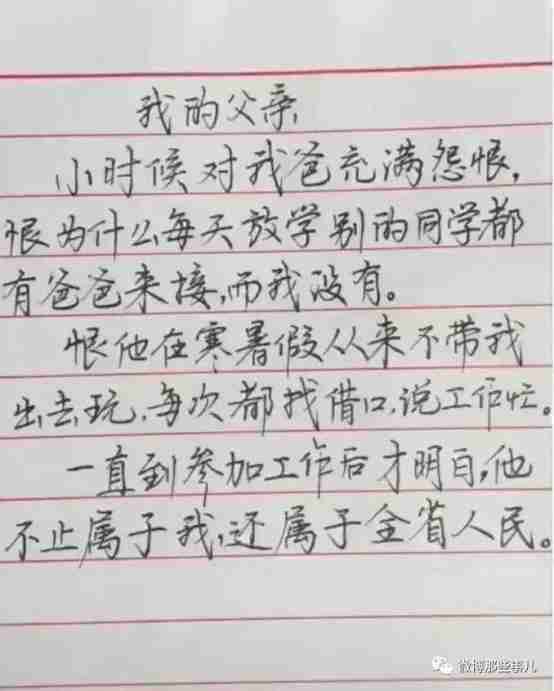 我的父亲
小时候对我爸充满怨恨，
恨为什么每天放学别的同学都
有爸爸来接，而我没有。
恨他在寒暑假从来不带我
出去玩，每次都找借口，说工作忙。
一直到参加工作后才明白，他
不止属于我，还属于全省人民。
微博那些事儿